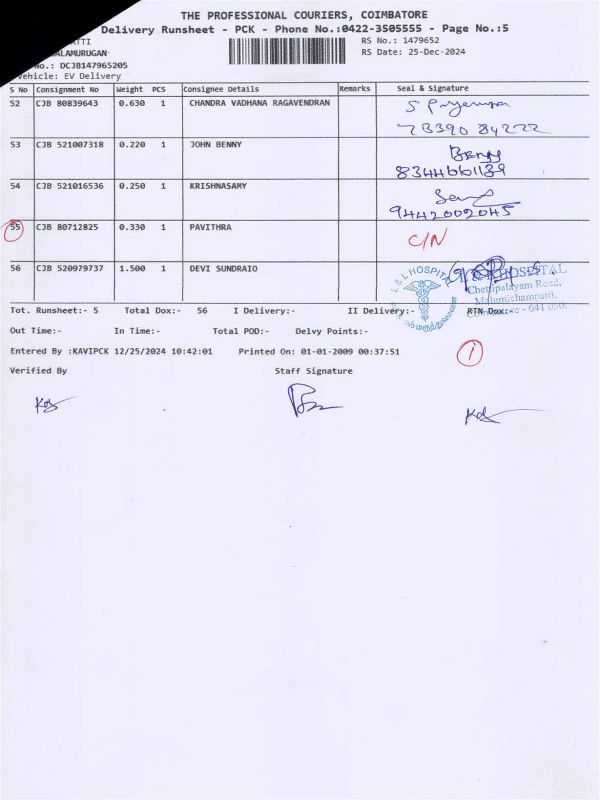 THE PROFESSIONAL COURIERS, COIMBATORE
Delivery Runsheet - PCK - Phone No.:0422-3505555 - Page No.:5
ATTI
RS No.: 1479652
ALAMURUGAN
RS Date: 25-Dec-2024
No.: DCJB147965205
Vehicle: EV Delivery
S No Consignment No Weight PCS Consignee Details Remarks Seal & Signature
52 CJB 80839643 0.630 1 CHANDRA VADHANA RAGAVENDRAN
53 CJB 521007318 0.220 1 JOHN BENNY Benny
8344661139
54 CJB 521016536 0.250 1 KRISHNASAMY
9442002045
55 CJB 80712825 0.330 1 PAVITHRA C/N
56 CJB 520979737 1.500 1 DEVI SUNDRAIO
L & L HOSPITAL
L & L HOSPITAL
Chettipalayam Road,
Malumichampatti,
Coimbatore - 641 050.
Tot. Runsheet:- 5 Total Dox:- 56 I Delivery:- II Delivery:- RTN Dox:-
Out Time:- In Time:- Total POD:- Delvy Points:-
Entered By :KAVIPCK 12/25/2024 10:42:01 Printed On: 01-01-2009 00:37:51
1
Verified By Staff Signature